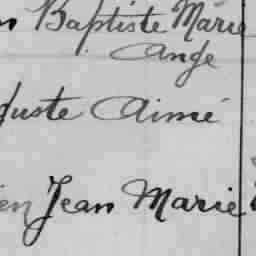 n Baptiste Marie
Ange
guste Aimé
ien Jean Marie